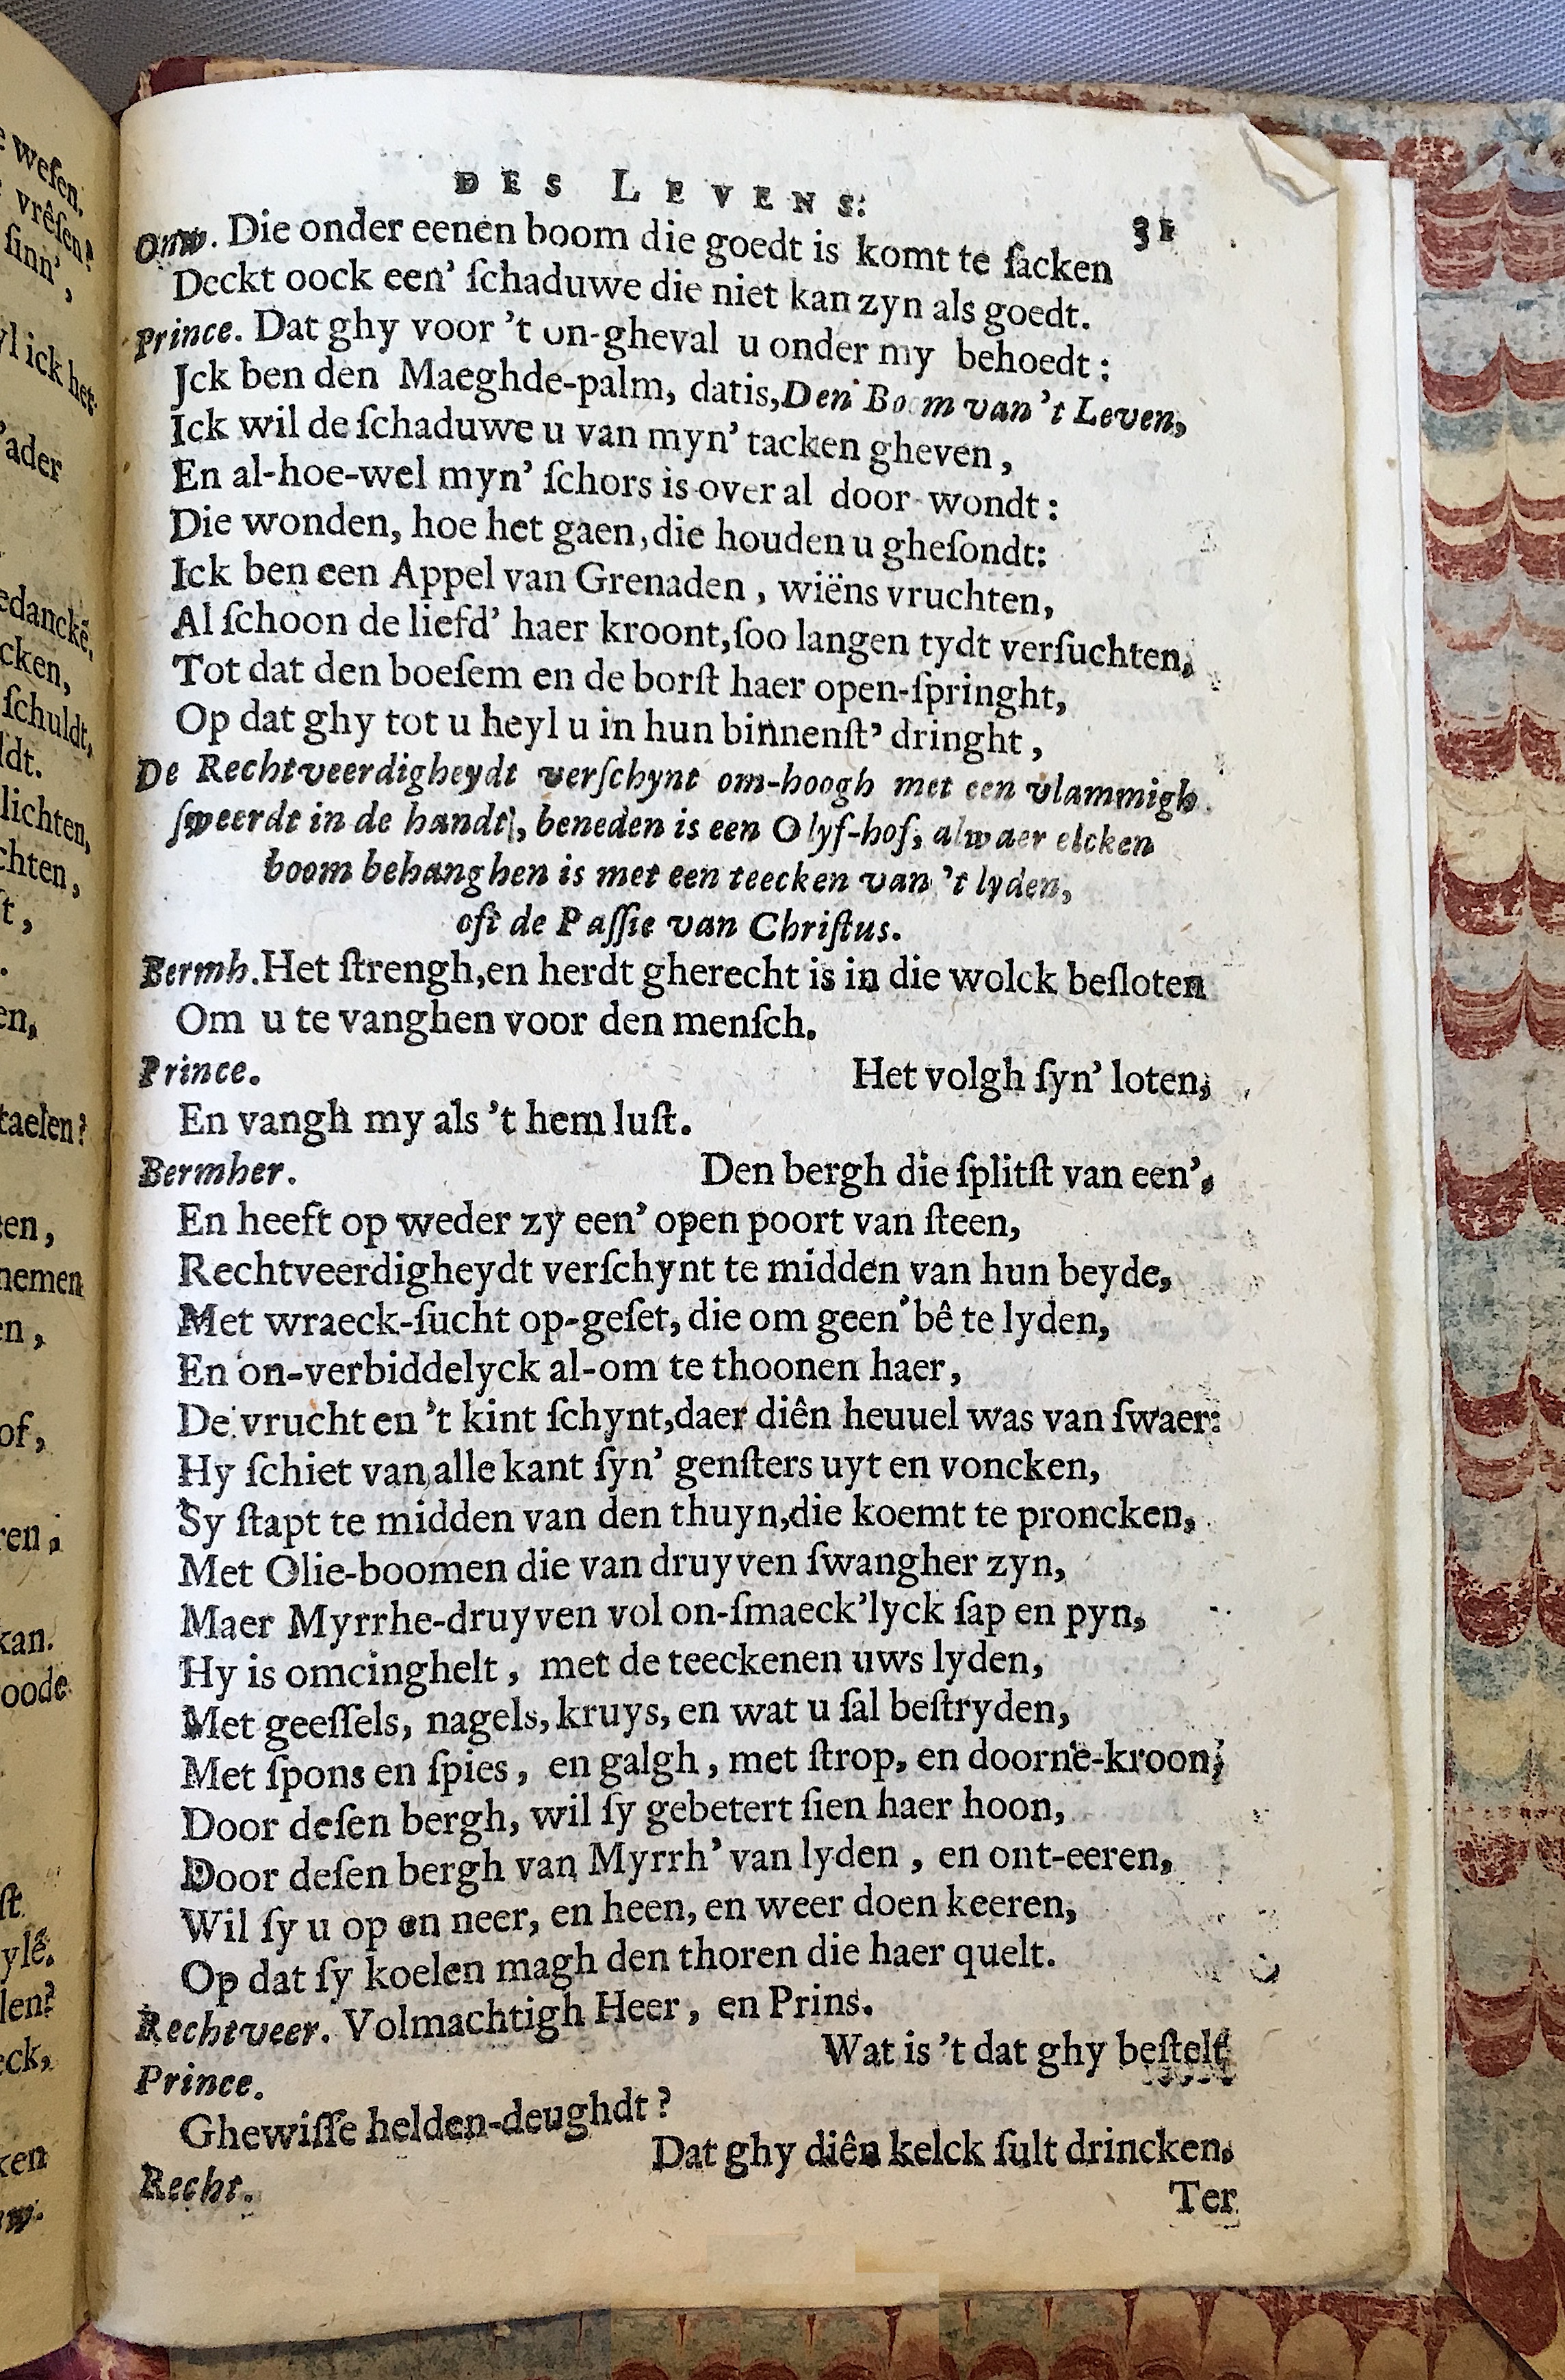 DES LEVENS. 31
Onw. Die onder eenen boom die goedt is komt te ſacken
Deckt oock een' ſchaduwe die niet kan zyn als goedt.
Prince. Dat ghy voor 't on-gheval u onder my behoedt:
Jck ben den Maeghde-palm, datis, Den Boom van 't Leven,
Ick wil de ſchaduwe u van myn' tacken gheven,
En al-hoe-wel myn' ſchors is over al door-wondt:
Die wonden, hoe het gaen, die houden u gheſondt:
Ick ben een Appel van Grenaden, wiëns vruchten,
Al ſchoon de liefd' haer kroont, ſoo langen tydt verſuchten,
Tot dat den boeſem en de borſt haer open-ſpringht,
Op dat ghy tot u heyl u in hun binnenſt' dringht,
De Rechtveerdigheydt verſchynt om-hoogh met een vlammigh
ſweerdt in de handt, beneden is een Olyf-hof, alwaer elcken
boom behanghen is met een teecken van 't lyden,
oft de Paſſie van Chriſtus.
Bermh. Het ſtrengh, en herdt gherecht is in die wolck beſloten
Om u te vanghen voor den menſch.
Prince. Het volgh ſyn' loten,
En vangh my als 't hem luſt.
Bermher. Den bergh die ſplitſt van een',
En heeft op weder zy een' open poort van ſteen,
Rechtveerdigheydt verſchynt te midden van hun beyde,
Met wraeck-ſucht op-geſet, die om geen' bê te lyden,
En on-verbiddelyck al-om te thoonen haer,
De vrucht en 't kint ſchynt, daer diên heuuel was van ſwaer:
Hy ſchiet van alle kant ſyn' genſters uyt en voncken,
Sy ſtapt te midden van den thuyn, die koemt te proncken,
Met Olie-boomen die van druyven ſwangher zyn,
Maer Myrrhe-druyven vol on-ſmaeck'lyck ſap en pyn,
Hy is omcinghelt, met de teeckenen uws lyden,
Met geeſſels, nagels, kruys, en wat u ſal beſtryden,
Met ſpons en ſpies, en galgh, met ſtrop, en doorne-kroon;
Door deſen bergh, wil ſy gebetert ſien haer hoon,
Door deſen bergh van Myrrh' van lyden, en ont-eeren,
Wil ſy u op en neer, en heen, en weer doen keeren,
Op dat ſy koelen magh den thoren die haer quelt.
Rechtveer. Volmachtigh Heer, en Prins.
Prince. Wat is 't dat ghy beſtelt
Ghewiſſe helden-deughdt?
Recht. Dat ghy diên kelck ſult drincken,
Ter